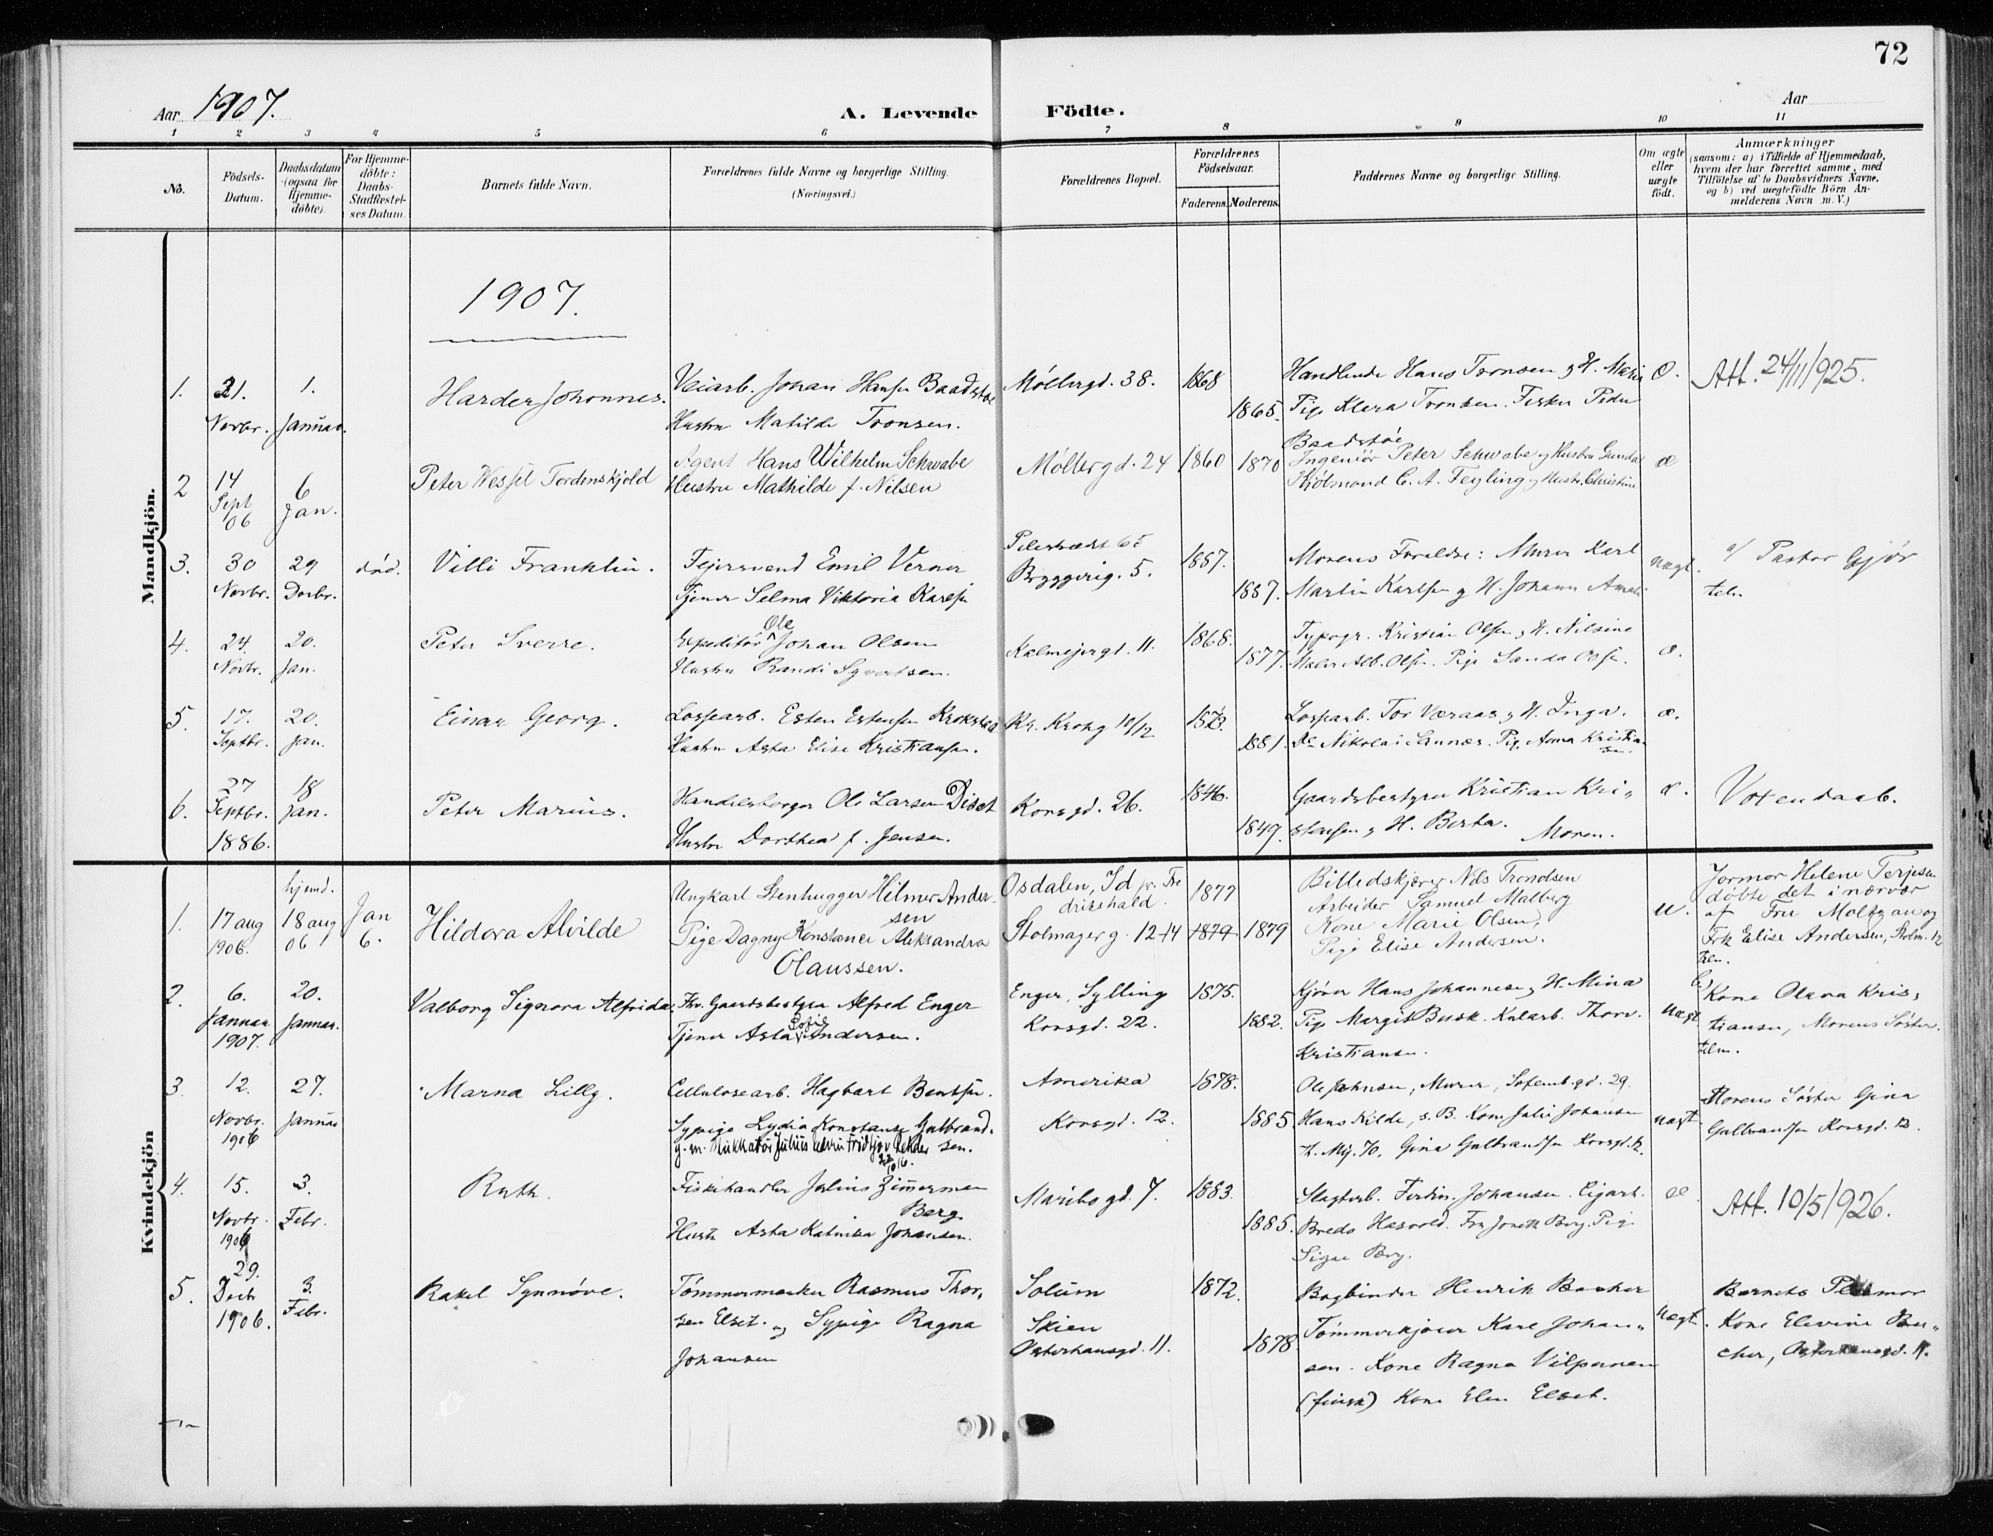 72
Aar 1907.
A. Levende Födte.
Aar
1 2 3 4 5 6 7 8 9 10 11
No.
Födsels-
Datum.
Daabsdatum
(ogsaa for
Hjemme-
döbte).
For Hjemme-
döbte:
Daabs-
Stadfæstel-
ses Datum.
Barnets fulde Navn.
Forældrenes fulde Navne og borgerlige Stilling.
(Næringsvei.)
Forældrenes Bopæl.
Forældrenes
Födselsaar.
Faderens. Moderens.
Faddernes Navne og borgerlige Stilling.
Om ægte
eller
uægte
födt.
Anmærkninger
(saasom: a) i Tilfælde af Hjemmedaab,
hvem der har forrettet samme, med
Tilföielse af to Daabsvidners Navne,
og b) ved uægtefödte Börn An-
melderens Navn m. V.)
Mandkjön.
1907.
1.
21.
Novbr.
1.
Januar.
Harder Johannes.
Veiarb. Johan Hansen Baadstøe
Hustru Matilde Tronsen.
Møllergd. 38.
1868
1865.
Handlende Hans Tronsen og H. Maria
Pige Klara Tronsen. Fisker Peder
Baadstøe
æ.
Att. 24/11/925.
2
14
Sept
06
6
Jan.
Peter Wessel Tordenskjold
Agent Hans Wilhelm Schwabe
Hustru Mathilde f. Nilsen
Møllergd. 24
1860 1870
Ingeniør Peter Schwabe og Hustru Gunda
C. A. Feyling og Hustr. Christine
æ
3.
30
Novbr.
29
Decbr.
død.
Villi Franklin.
Feiersvend Emil Verner
Tjener Selma Viktoria Karlsen
Pilestrædet 65
Bryggerig. 5.
1887.
1887.
Morens Forældre: Murer Karl
Martin Karlsen og H. Johanne Amalie
uægt.
v/ Pastor Gjør
telm
4.
24.
Novbr.
20.
Jan.
Peter Sverre.
Expeditør Ole Johan Olsen
Hustru Randi Syvertsen.
Kalmejergd. 11.
1868.
1877.
Typogr. Kristian Olsen og H. Nilsine
Maler Alb. Olsen. Pige Sanda Olsen.
æ.
5.
17.
Septbr.
20.
Jan.
Einar Georg.
Lossearb. Esten Estensen Krokstad
Hustru Asta Elise Kristiansen.
Kr. Krohg 10/12
1873.
1881.
Lossearb. Tor Væraas og H. Inga.
Do Nikolai Saunæs. Pige Anna Kristian-
sen.
æ.
6.
27
Septbr.
1886.
18
Jan.
Peter Marius.
Handelsborger Ole Larsen Diset
Hustru Dorthea f. Jensen.
Korsgd. 26.
1846.
1849.
Gaardsbestyrer Kristian Kri-
stensen og H. Berta. Moren.
æ.
Voxendaab.
Kvindekjön
1.
17 aug
1906.
hjemd.
18 aug
06
Jan
6.
Hildora Alvilde
Ungkarl Stenhugger Hilmer Ander-
sen
Pige Dagny Konstance Aleksandra
Olaussen.
Osdalen, Id pr. Fre
drikshald.
Stolmagerg. 12-14
1877
1879 1879
Billedskjærer Nils Trondsen
Arbeider Samuel Malberg
Kone Marie Olsen,
Pige Elise Andersen.
u.
Jormor Helene Terjesen
døbte det i nærvær
af Fru Moltzau og
Frk Elise Andersen, Stolm. 12
tlm.
2.
6.
Januar
1907.
20.
Januar.
Valborg Signora Alfrida.
Fhv. Gaardsbestyrer Alfred Enger
Tjener Asta Sofie Andersen.
Enger, Sylling
Korsgd. 22.
1875.
1882.
Kjører Hans Johannesen og H. Mina
Pige Margit Busk. Kularb. Thorv.
Kristiansen.
uægt
Kone Olava Kris-
tiansen, Morens Søster.
tilm.
3.
12.
Novbr.
1906
27.
Januar
Marna Lilly.
Cellulosearb. Hagbart Bentsen.
Sypige Lydia Konstanse Gulbrand-
sen.
Amerika
Korsgd. 12.
1878.
1885.
Ole Johnsen, Murer, Sofienbgd. 29.
Hans Kilde, s. B. Kone Julie Johansen
Th. Mg. 70, Gina Gulbrandsen Korsgd. 12.
uægt.
Morens Søster Gina
Gulbrandsen Korsgd. 12.
4.
15.
Novbr.
1906
3.
Febr.
Ruth.
Fiskehandler Julius Zimmerman
Berg
Hustr Asta Katinka Johansen.
Maribogd. 7.
1883.
1885.
Slagterb. Ferdin. Johansen. Cigarh.
Bredo Hasvold. Fru Jonette Berg. Pige
Signe Berg.
æ.
Att. 10/5/926.
5.
29.
Decbr
1906.
3.
Febr.
Rakel Synnøve.
Tømmermerker Rasmus Thor-
sen Elset. og Sypige Ragna
Johansen
Solum
Skien
Osterhausgd. 11.
1872.
1878
Bogbinder Henrik Backer
Tømmerkjører Karl Johan-
sen. Kone Ragna Vilpannen
(finsk) Kone Elen Elset.
uægt.
Barnets Pleiemor
Kone Elevine Ba-
cher, Osterhausgd. 11.